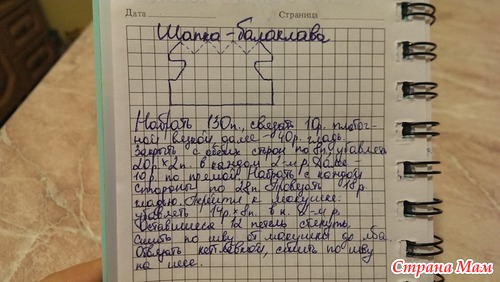 Дата Страница
Шапка-балаклава
Набрать 130п., связать 10р. платоч-
ной вязкой, далее - 40р. гладь.
Закрыть с обеих сторон по 8п, убавлять
20р.х2п. в каждом 2-м р. Далее -
10р. по прямой. Набрать с каждой
стороны по 28п. Провязать 18р.
гладью. Перейти к макушке:
убавлять 14р.х8п. в к. 2-м р.
Оставшиеся 12 петель стянуть.
Сшить по шву от макушки до лба.
Обвязать кеттлёвкой, сшить по шву
на шее.
Страна Мам